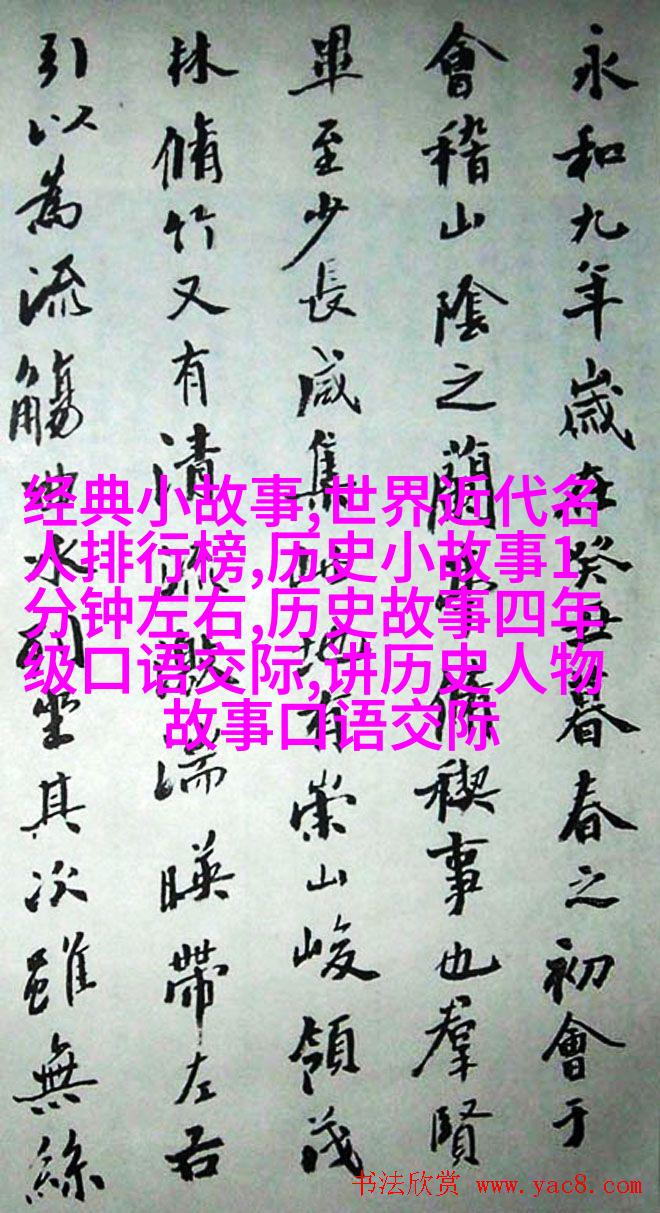 永和九年歲在癸丑暮春之初會于
會稽山陰之蘭亭脩稧事也群賢
畢至少長咸集此地有崇山峻領茂
林脩竹又有清流激湍暎帶左右
引以為流觴曲水列坐其次雖無絲
经典小故事,世界近代名
人排行榜,历史小故事1
分钟左右,历史故事四年
级口语交际,讲历史人物
故事口语交际
书法欣赏 www.yac8.com